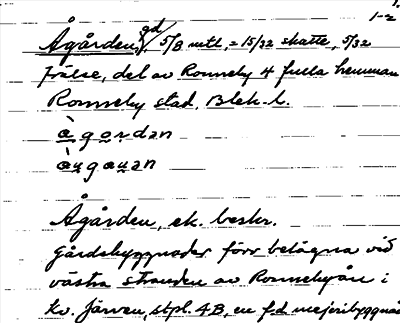 1-2
Ågården, gd 5/8 mtl, = 15/32 skatte, 5/32
frälse, del av Ronneby 4 fulla hemman
Ronneby stad, Blek. l.
ågordən
Ågården, ek. beskr.
Gårdsbyggnader förr belägna vid
västra stranden av Ronnebyån i
kv. Järven, stpl. 4B, en f.d mejeribyggna